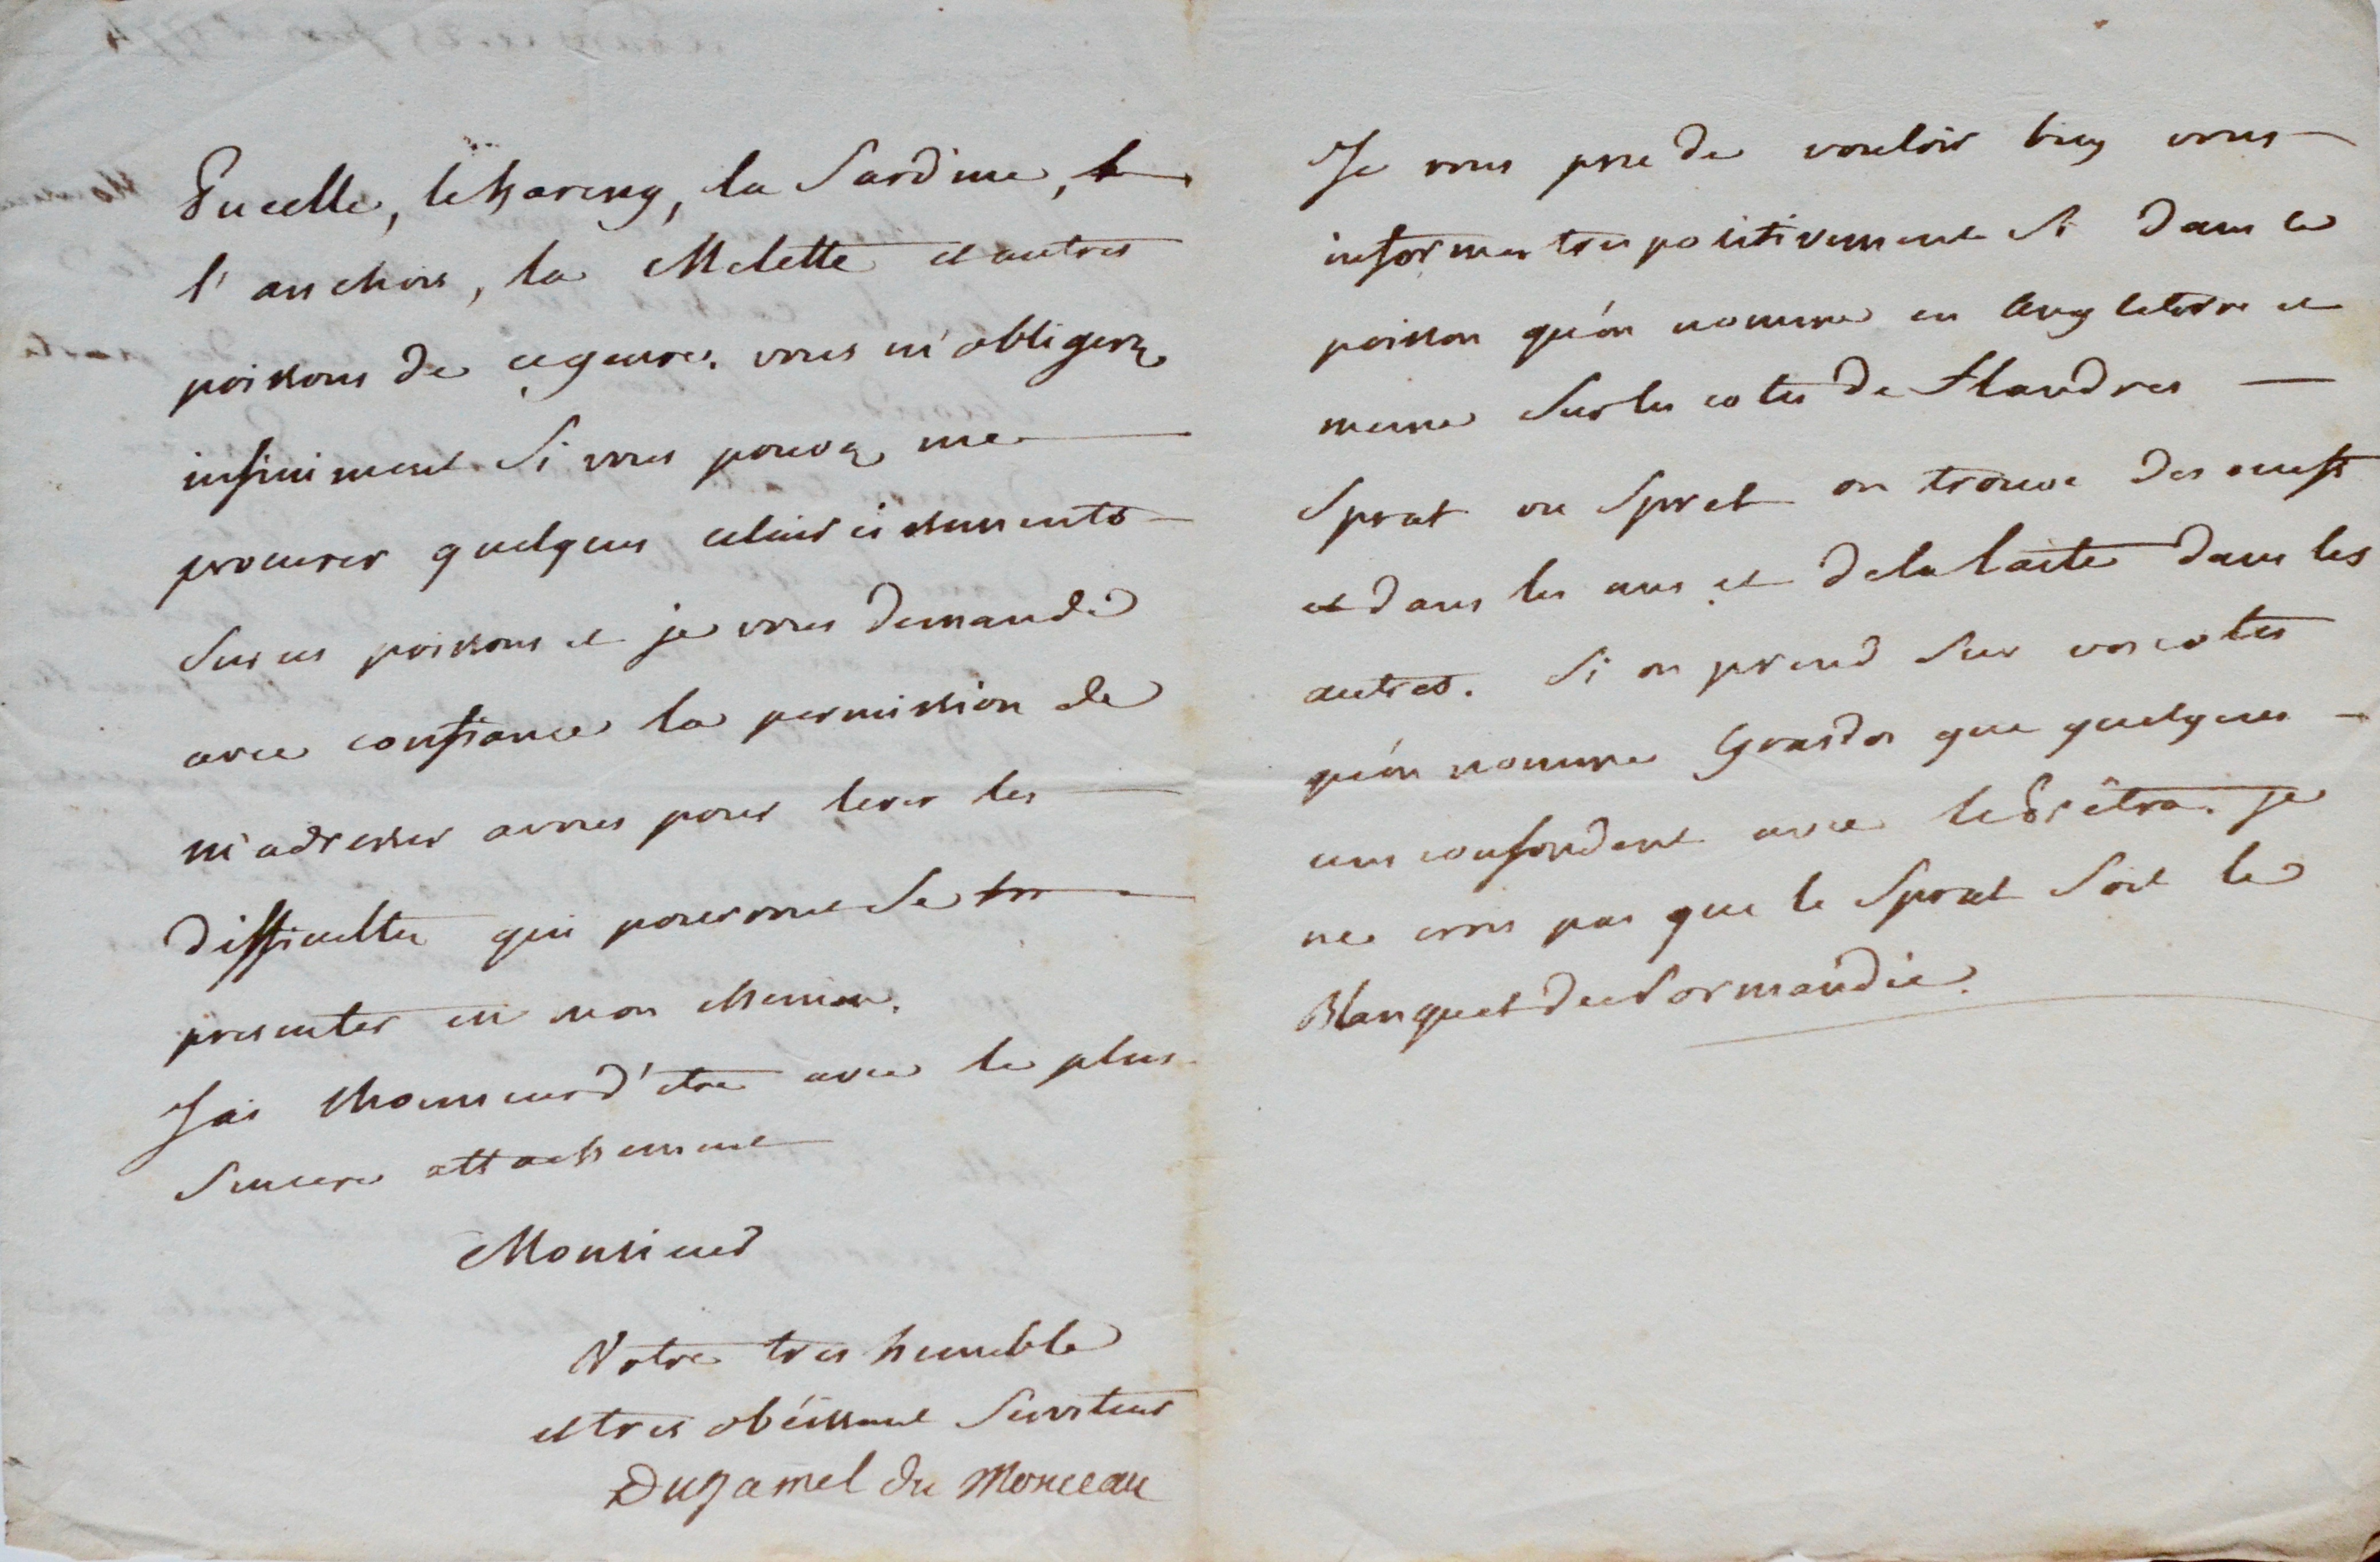 Pucelle, le hareng, la Sardine, le
l'anchois, la Melette et autres
poissons de ce genre. vous m'obligerez
infiniment Si vous pouvez me
procurer quelques eclaircissements
Sur ces poissons et je vous demande
avec confiance la permission de
m'adresser a vous pour lever les
difficultés qui pouront Se
presenter en mon chemin.
J'ai lhonneur d'etre avec le plus
Sincere attachement
Monsieur
Votre tres humble
et tres obéissant Serviteur
Duhamel du Monceau
Je vous prie de vouloir bien vous
informer tres positivement Si dans le
poisson qu'on nomme en Angleterre et
meme Sur les cotes de Flandres
Sprat ou Spret on trouve des oeufs
et dans les uns et de la laite dans les
autres. Si on prend Sur vos cotes
qu'on nomme que quelques
uns confondent avec le Prêtra. Je
ne crois pas que le Sprat Soit le
Blanquet de Normandie.